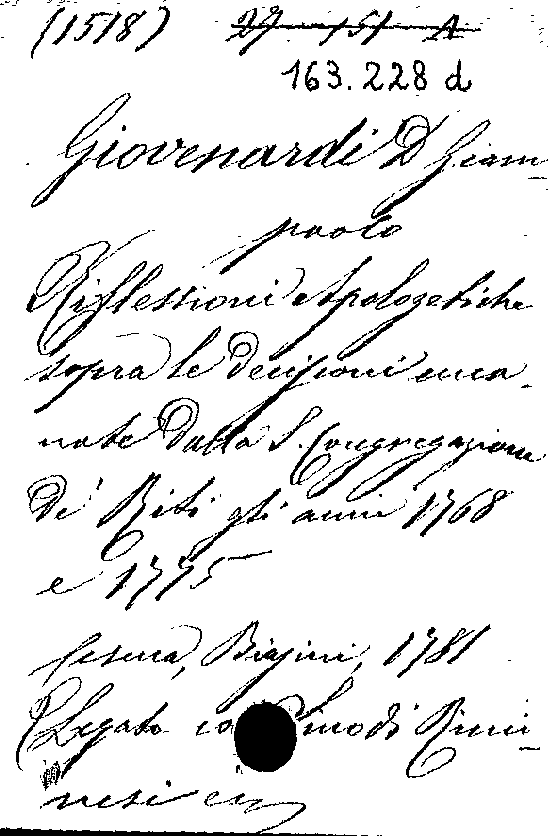 (1518) 27 151 A
163.228 d
Giovenardi D Giam-
paolo
Riflessioni Apologetiche
sopra le decisioni ema-
nate dalla S. Congregazione
de' Riti gli anni 1768
e 1775
Cesena, Biasini, 1781
(Legato di Rimi-
nesi